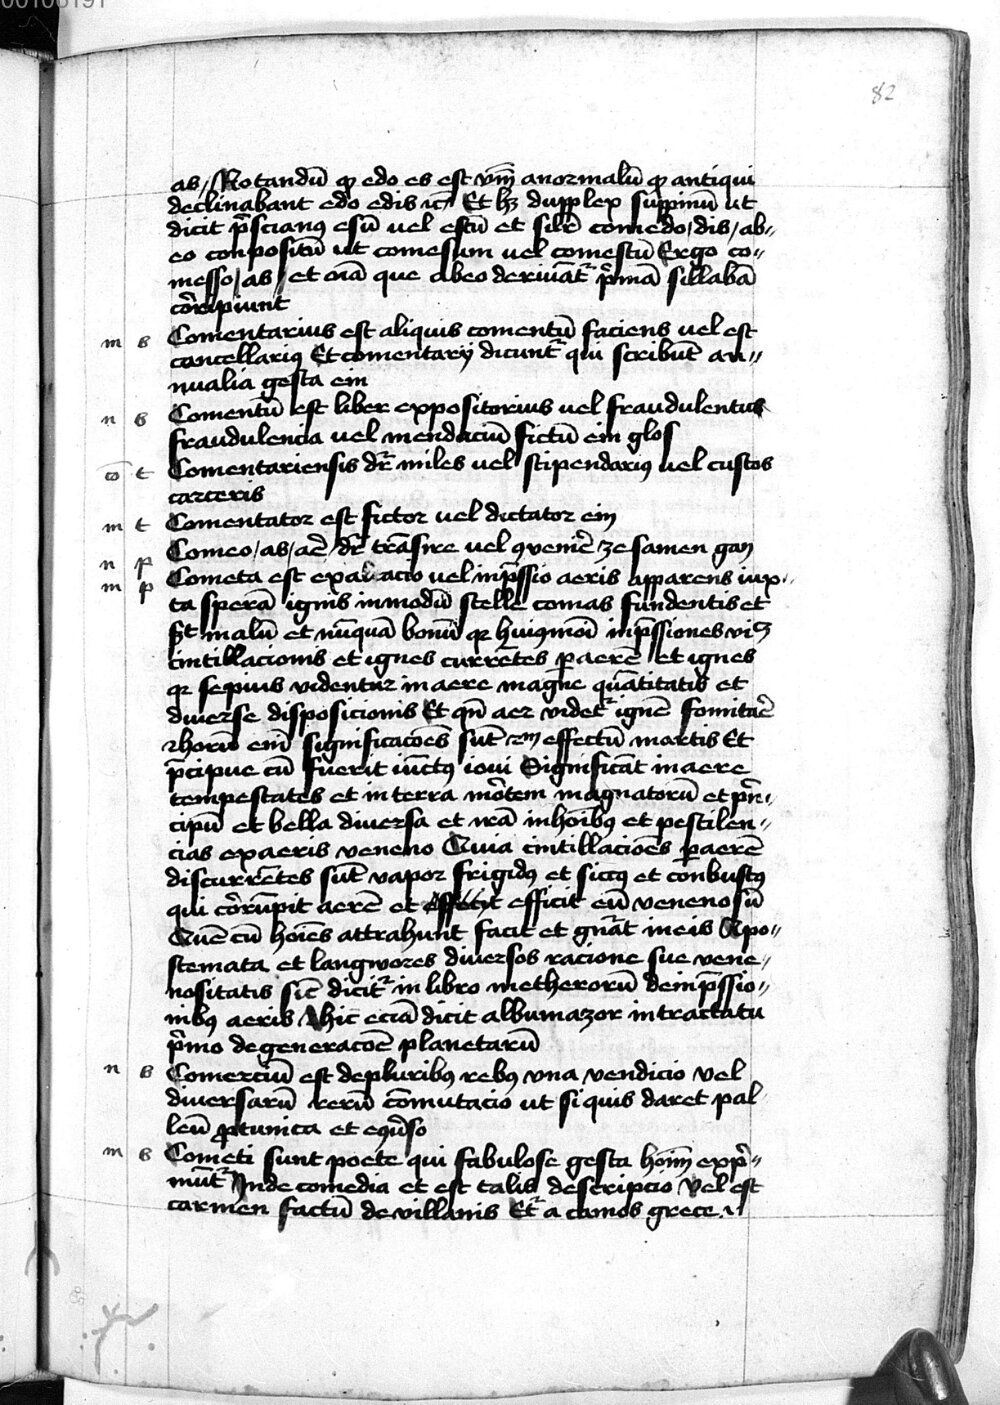 00108191
82
as / Notandū qɜ edo es est vm̄ anormalū qɜ antiqui
declinabant edo edis ⁊cͣ Et hꝫ dupplex suppinū ut
dicit p̄scianꝰ esū vel estū et silr̄ comedo / dis / ab-
eo conpositū ut comesum vel comestū Ergo co-
messo / as / et oīa que abeo deriuāt᷑ p̄mā sillabā
cōripiunt
m s Comentarius est aliquis comentū faciens vel est
cancellariꝰ Et comentarÿ dicunt᷑ qui scribūt an-
nualia gesta ein
n s Comentū est liber expositorius vel fraudulentus
fraudulencia vel mendaciū fictū ein glos
co t Comentariensis dr̄ miles vel stipendariꝰ vel custos
carceris
m t Comentator est fictor vel dictator ein
n p Comeo / as / ar̄e / dr̄ trāsire vel ꝯuenir̄e ze samen gan
m p Cometa est exalacio vel inp̄ssio aeris apparens iux-
ta sperā ignis inmodū stelle comas fundentis et
malū et nūquā bonū qɜ huiꝰmōi inp̄ssiones viꝫ
cintillacionis et ignes currētes ꝑ aerē et ignes
qɜ sepius videntur in aere magne quātitatis et
diuerse disposicionis Et qn̄ aer videt᷑ ignē fomitar̄e
⁊ horū em̄ significacōes sūt ẜm effectū martis Et
p̄cipue cū fuerit iūctꝰ ioui Significāt in aere
tempestates et in terra mōtem magnatorū et prī-
cipū et bella diuersa et irā inhoībꝰ et pestilen-
cias ex aeris veneno Quia cintillacioēs ꝑ aerē
discurrētes sūt vapor frigidꝰ et siccꝰ et conbustꝰ
qui cōrūpit aerē et efficit efficit eū venenosū
Quē cū hoīes attrahunt facit et gnāt in eis Apo-
stemata et langwores diuersos racione sue vene-
nositatis sic̄ dicit᷑ in libro metherorū de inp̄ssio-
nibꝰ aeris hic eciā dicit albumazor in tractatu
p̄mo de generacōe planetarū
n s Comerciū est de pluribꝰ rebꝰ vna vendicio vel
diuersarū rerū cōmutacio ut si quis daret pal-
leū ꝓ tunica et eqūso
m s Cometi sunt poete qui fabulose gesta hoīm expr̄-
mūt᷑ Inde comedia et est talis descripcio vel est
carmen factū de villanis Et᷑ a camos grece